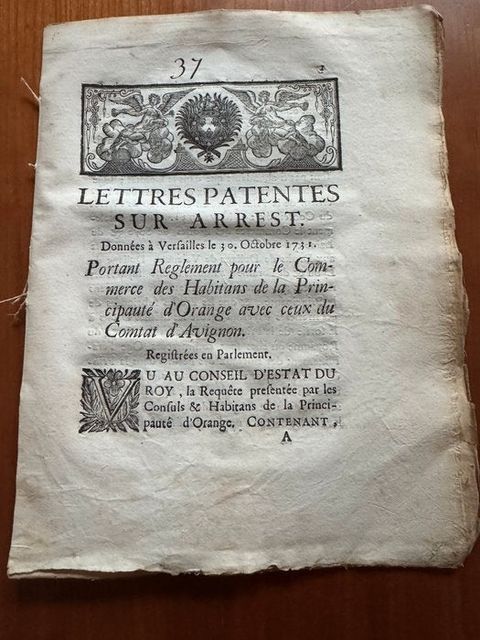 37
LETTRES PATENTES
SUR ARREST.
Données à Versailles le 30. Octobre 1731.
Portant Reglement pour le Com-
merce des Habitans de la Prin-
cipauté d'Orange avec ceux du
Comtat d'Avignon.
Registrées en Parlement.
VU AU CONSEIL D'ESTAT DU
ROY, la Requête presentée par les
Consuls & Habitans de la Princi-
pauté d'Orange, CONTENANT,
A